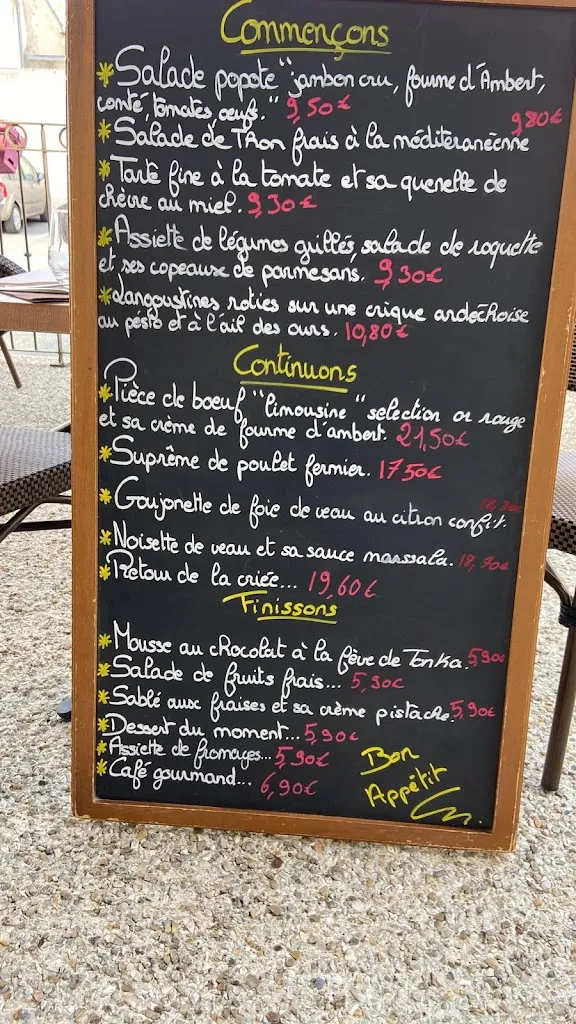 Commençons
*Salade popote "jambon cru, fourme d'Ambert,
comté, tomates, oeufs." 9,50€
9,80€
*Salade de Thon frais à la méditéranéenne
*Tarte fine à la tomate et sa quenelle de
chèvre au miel. 9,30€
*Assiette de légumes grillés, salade de roquette
et ses copeaux de parmesans. 9,30€
*Langoustines roties sur une crique ardéchoise
au pesto et à l'ail des ours. 10,80€
Continuons
*Pièce de boeuf "limousine" selection or rouge
et sa crème de fourme d'ambert. 21,50€
*Suprême de poulet fermier. 17,50€
*Goujonette de foie de veau au citron confit.
*Noisette de veau et sa sauce marssala. 18,90€
*Retour de la criée... 19,60€
Finissons
*Mousse au chocolat à la fève de Tonka. 5,90€
*Salade de fruits frais... 5,90€
*Sablé aux fraises et sa crème pistache. 5,90€
*Dessert du moment... 5,90€
*Assiette de fromages... 5,90€
*Café gourmand... 6,90€
Bon
Appétit